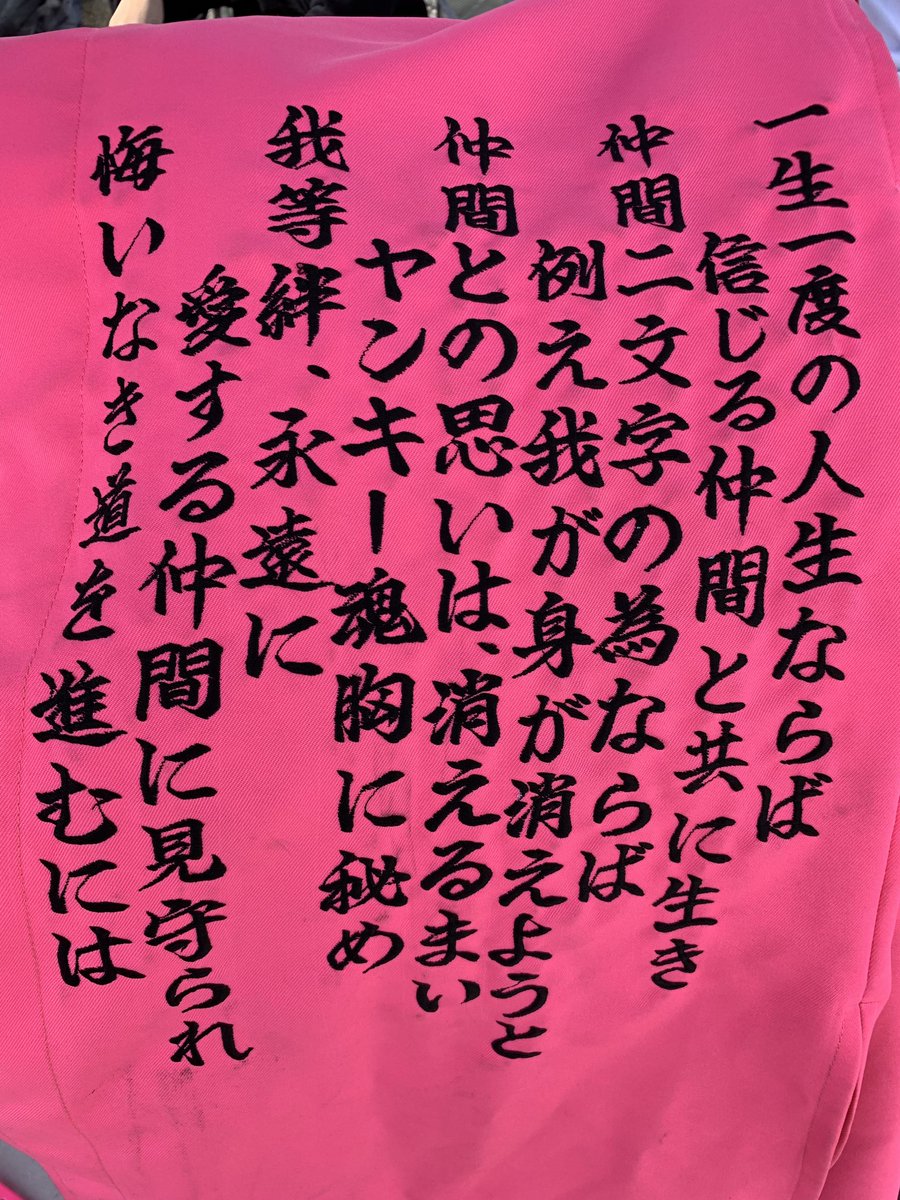 一生一度の人生ならば
信じる仲間と共に生き
仲間二文字の為ならば
例え我が身が消えようと
仲間との思いは、消えるまい
ヤンキー魂胸に秘め
我等絆、永遠に
愛する仲間に見守られ
悔いなき道を進むには